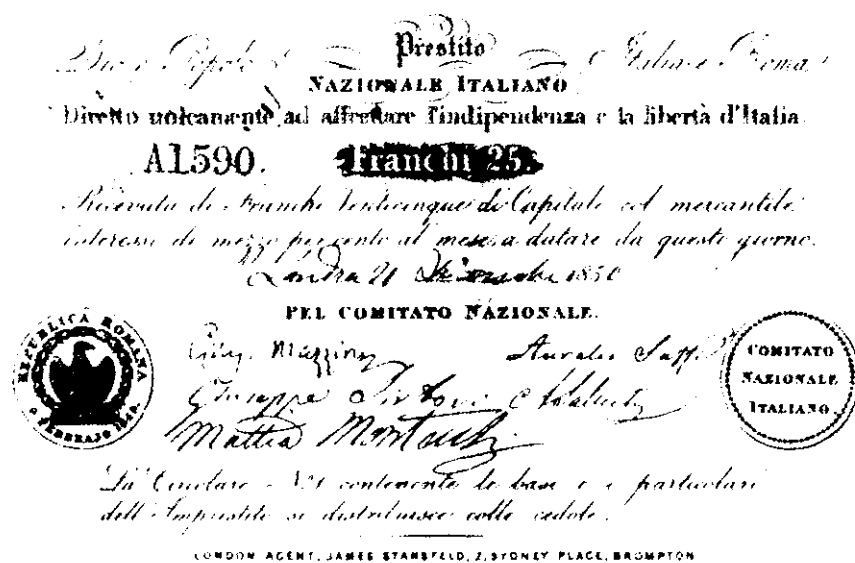 Dio e Popolo Prestito Italia e Roma
NAZIONALE ITALIANO
Diretto unicamente ad affrettare l'indipendenza e la libertà d'Italia
A1590. Franchi 25.
Ricevuta di Franchi Venticinque di Capitale col mercantile
interesse di mezzo per cento al mese a datare da questo giorno.
Londra 21 1850
PEL COMITATO NAZIONALE.
REPUBLICA ROMANA
9 FEBBRAJO 1849.
Gius. Mazzini Aurelio Saffi
Giuseppe Sirtori
Mattia Montecchi
COMITATO
NAZIONALE
ITALIANO.
La Circolare N.1 contenente le base e i particolari
dell'Imprestito si distribuisce colle cedole.
LONDON AGENT, JAMES STANSFELD, 2, SYDNEY PLACE, BROMPTON